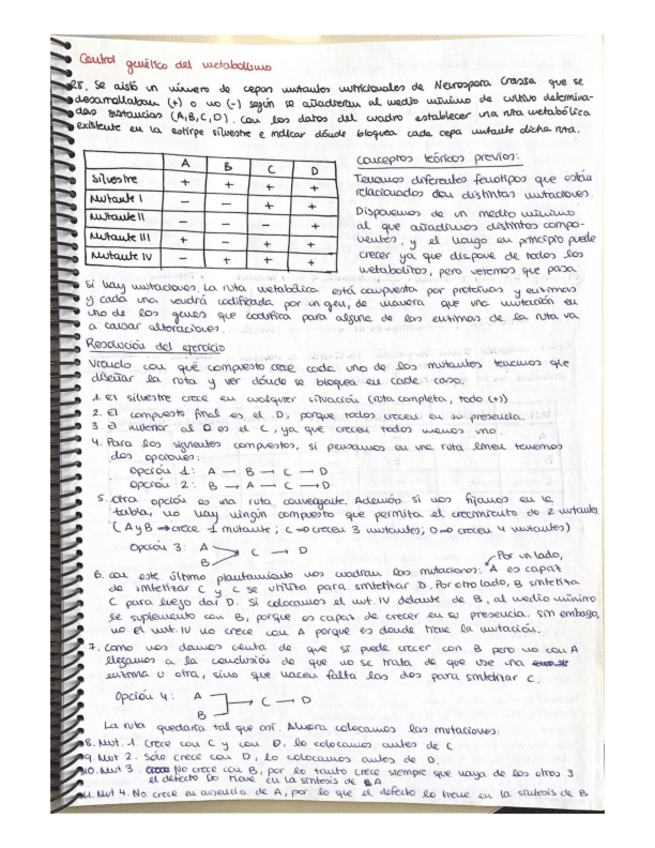 Control genético del metabolismo
28. Se aisló un número de cepas mutantes nutricionales de Neurospora Crassa que se
desarrollaban (+) o no (-) según se añadieran al medio mínimo de cultivo determina-
das sustancias (A,B,C,D). Con los datos del cuadro establecer una ruta metabólica
existente en la estirpe silvestre e indicar dónde bloquea cada cepa mutante dicha ruta.
A B C D
Silvestre + + + +
Mutante I - - + +
Mutante II - - - +
Mutante III + - + +
Mutante IV - + + +
Conceptos teóricos previos:
Tenemos diferentes fenotipos que están
relacionados con distintas mutaciones.
Disponemos de un medio mínimo
al que añadimos distintos compo-
nentes, y el hongo en principio puede
crecer ya que dispone de todos los
metabolitos, pero veremos que pasa
si hay mutaciones. La ruta metabólica está compuesta por proteínas y enzimas
y cada una vendrá codificada por un gen, de manera que una mutación en
uno de los genes que codifica para alguna de las enzimas de la ruta va
a causar alteraciones.
Resolución del ejercicio
Viendo con qué compuesto crece cada uno de los mutantes tenemos que
diseñar la ruta y ver dónde se bloquea en cada caso.
1. El silvestre crece en cualquier situación (ruta completa, todo (+))
2. El compuesto final es el D, porque todos crecen en su presencia.
3. El anterior al D es el C, ya que crecen todos menos uno.
4. Para los siguientes compuestos, si pensamos en una ruta lineal tenemos
dos opciones:
Opción 1: A → B → C → D
Opción 2: B → A → C → D
5. Otra opción es una ruta convergente. Además si nos fijamos en la
tabla, no hay ningún compuesto que permita el crecimiento de 2 mutantes
(A y B → crece 1 mutante; C → crecen 3 mutantes; D → crecen 4 mutantes)
Opción 3: A
B > C → D
Por un lado,
6. Con este último planteamiento nos cuadran las mutaciones: A es capaz
de sintetizar C y C se utiliza para sintetizar D. Por otro lado, B sintetiza
C para luego dar D. Si colocamos el mut. IV delante de B, al medio mínimo
le suplemento con B, porque es capaz de crecer en su presencia. Sin embargo,
no el mut. IV no crece con A porque es donde tiene la mutación.
7. Como nos damos cuenta de que sí puede crecer con B pero no con A
llegamos a la conclusión de que no se trata de que use una
enzima u otra, sino que hacen falta las dos para sintetizar C.
Opción 4: A
B → C → D
La ruta quedaría tal que así. Ahora colocamos las mutaciones:
8. Mut. 1. Crece con C y con D, lo colocamos antes de C
9. Mut 2. Sólo crece con D, lo colocamos antes de D.
10. Mut 3. No crece con B, por lo tanto crece siempre que haya de los otros 3
el defecto lo tiene en la síntesis de A
11. Mut 4. No crece en ausencia de A, por lo que el defecto lo tiene en la síntesis de B